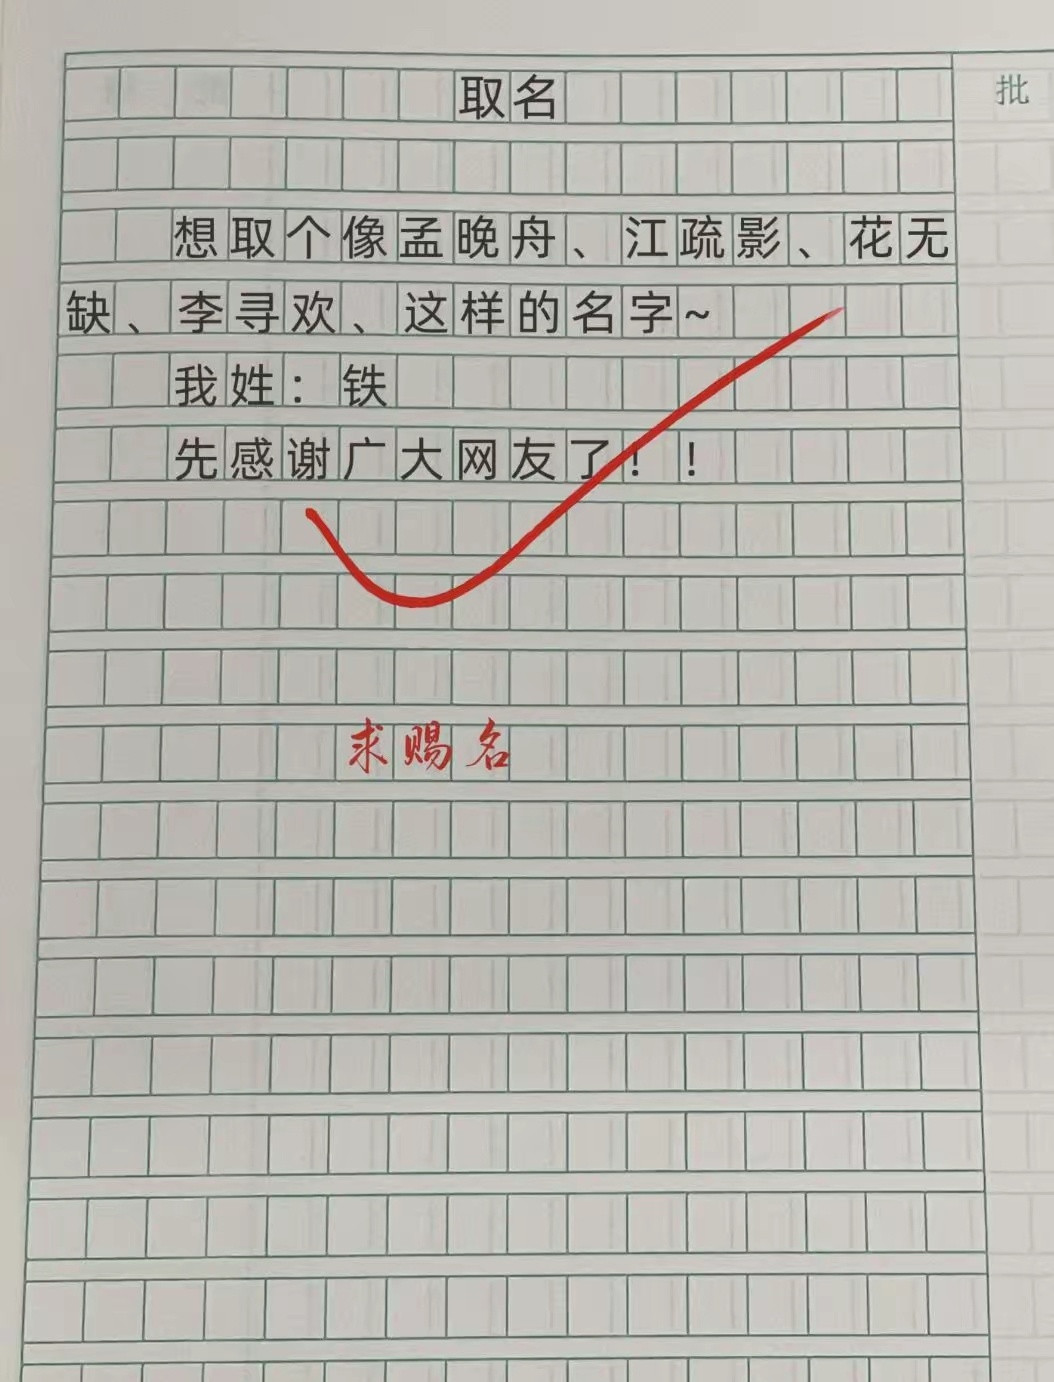 取名
批
想取个像孟晚舟、江疏影、花无
缺、李寻欢、这样的名字~
我姓：铁
先感谢广大网友了！！
求赐名